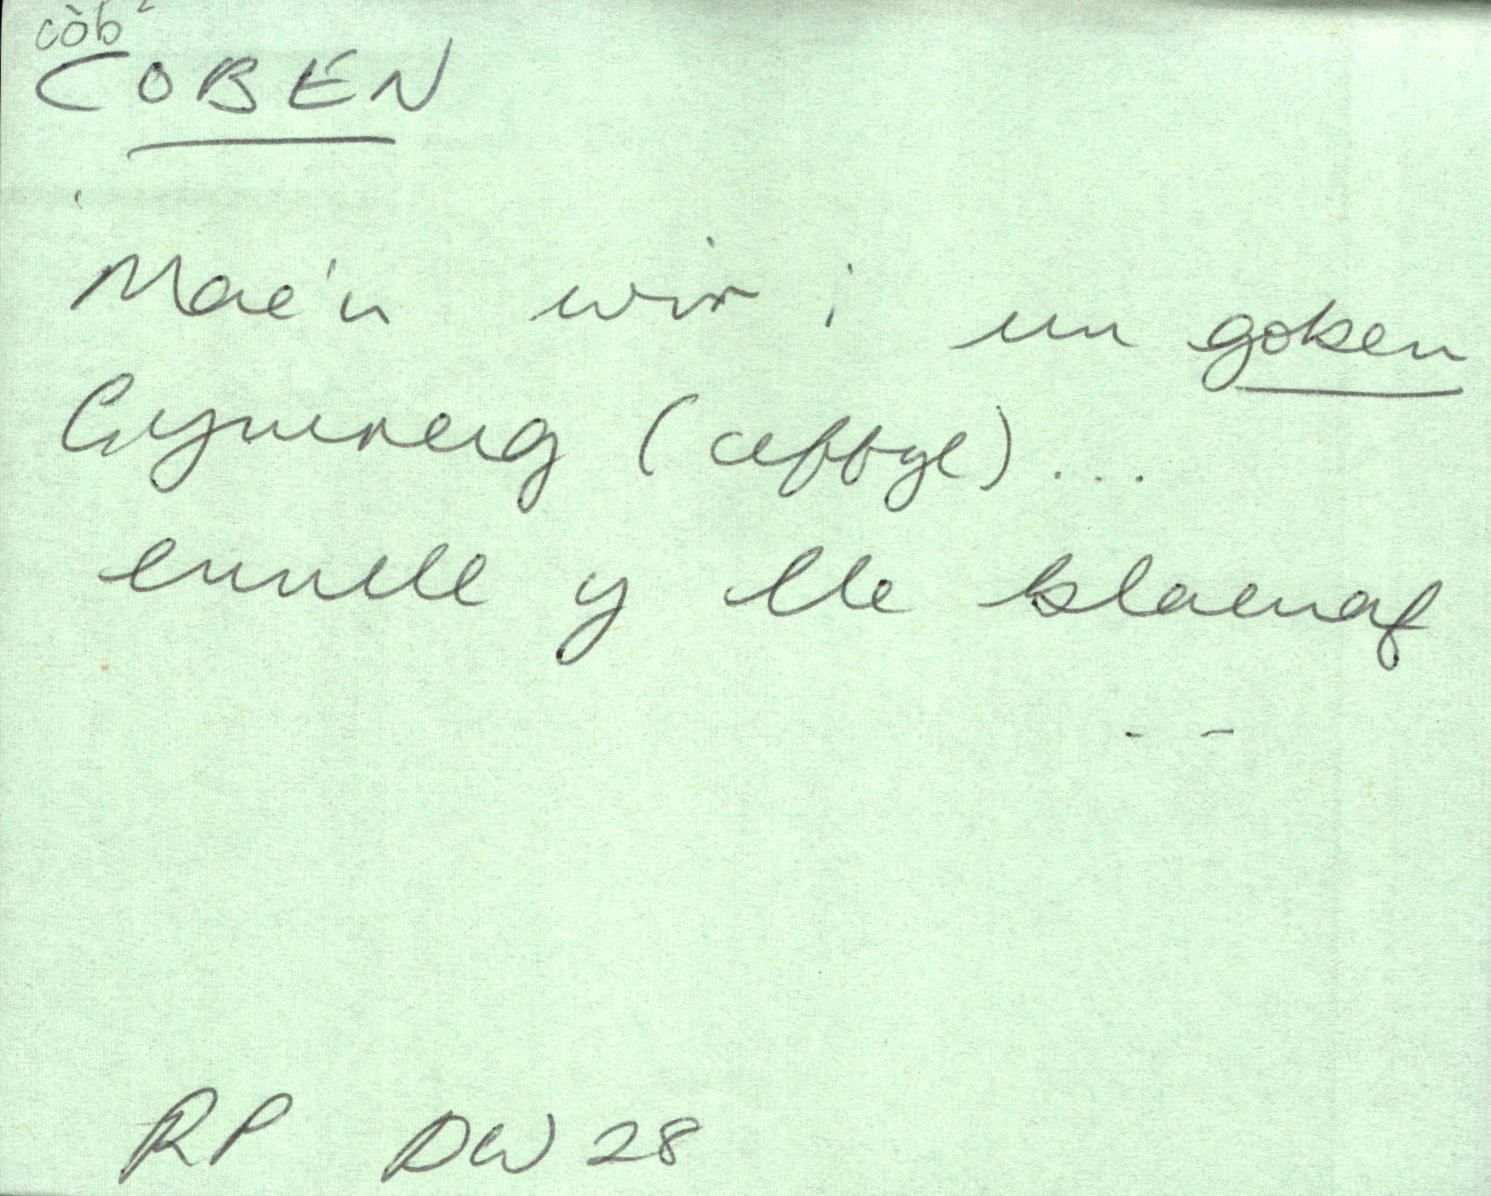 còb²
COBEN
Mae'n wir i un goben
Gymreig (ceffyl)...
ennill y lle blaenaf
- -
RP DW 28